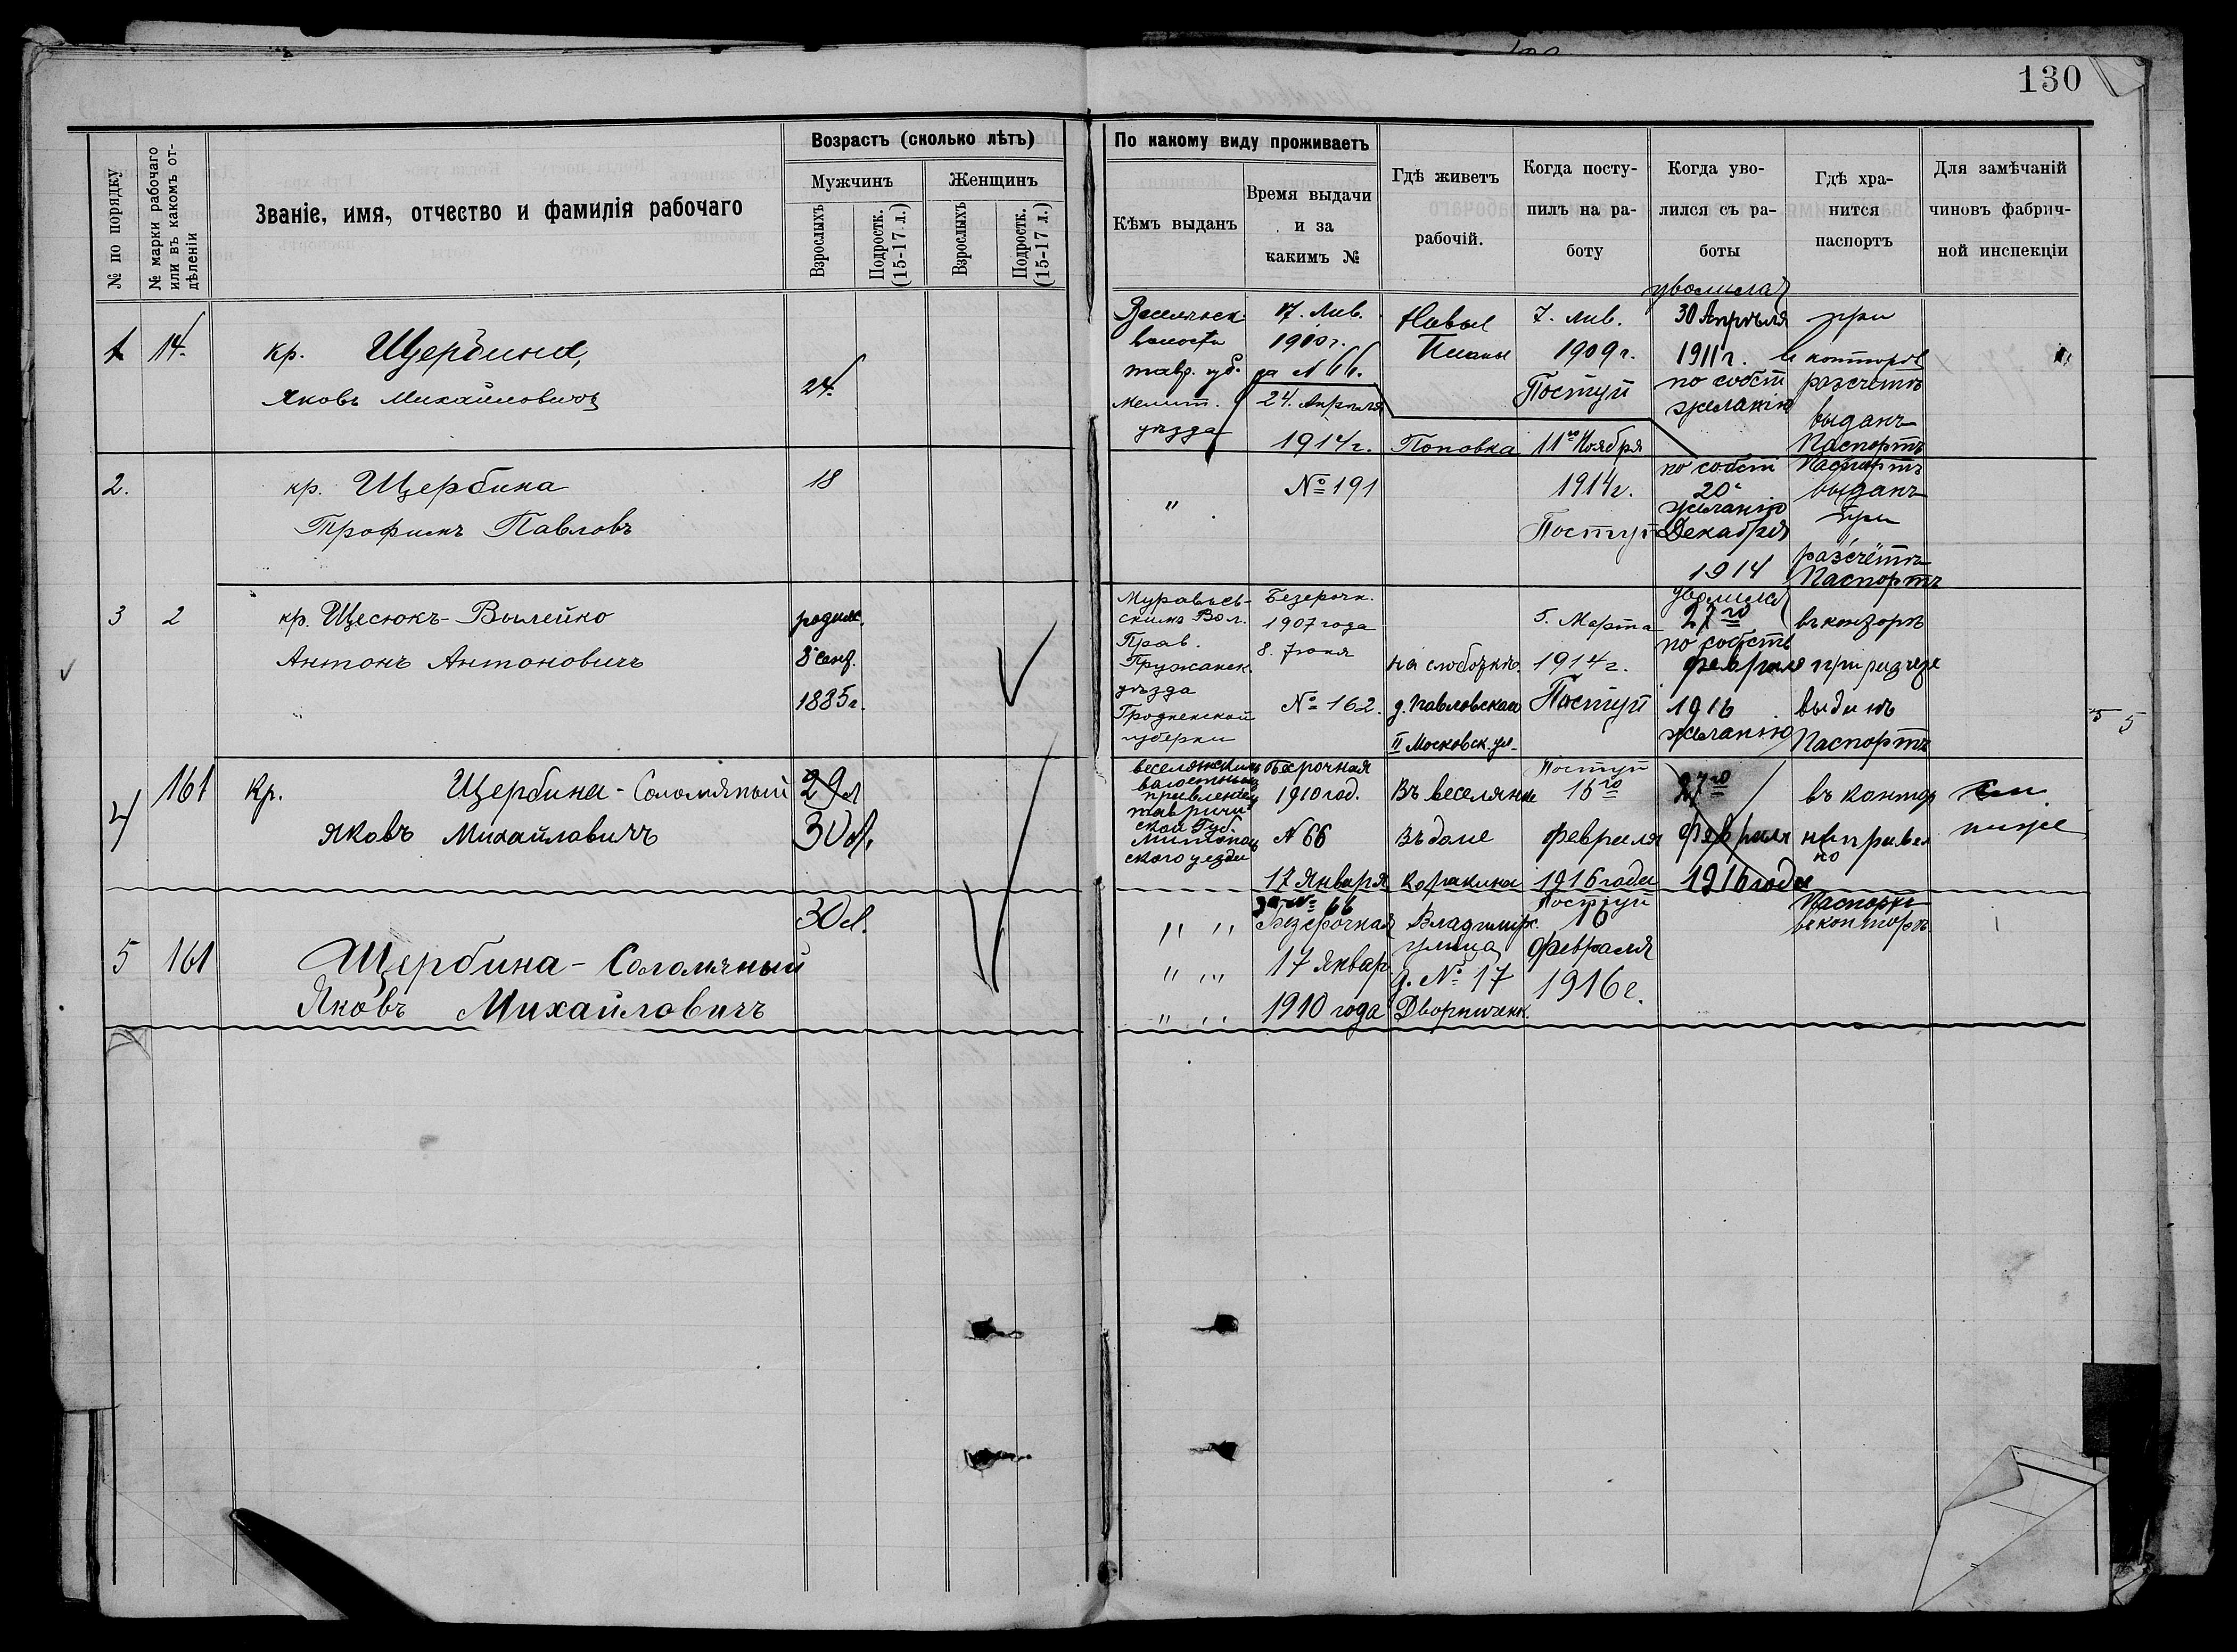 130
№ по порядку
№ марки рабочаго
или въ какомъ от-
дѣленіи
Званіе, имя, отчество и фамилія рабочаго
Возрастъ (сколько лѣтъ)
Мужчинъ
Женщинъ
Взрослыхъ
Подростк.
(15-17 л.)
Взрослыхъ
Подростк.
(15-17 л.)
По какому виду проживаетъ
Кѣмъ выданъ
Время выдачи
и за
какимъ №
Гдѣ живетъ
рабочій.
Когда посту-
пилъ на ра-
боту
Когда уво-
лился съ ра-
боты
Гдѣ хра-
нится
паспортъ
Для замѣчаній
чиновъ фабрич-
ной инспекціи
1 14.
кр. Щербина,
Яковъ Михайловичъ
24.
волости
тавр. губ.
мелит.
уѣзда
17. Янв.
1910 г.
за № 66.
7. янв.
1909 г.
Поступ
уволился
30 Апрѣля
1911 г.
по собст
желанію
при
конторѣ
разсчетѣ
выданъ
Паспортъ
2.
кр. Щербина
Трофимъ Павловъ
18
"
24. Апрѣля
1914 г.
№ 191
Поповка
11го Ноября
1914 г.
Поступ
по собст
20
желанію
Декабря
1914
Паспортъ
выданъ
при
разсчётѣ
Паспортъ
3 2
кр. Щесюкъ-Вылейко
Антонъ Антоновичъ
родился
8 сент.
1885 г.
Муравьев-
скимъ Вол.
Прав.
Пружанск.
уѣзда
Гродненской
губерни
Безсрочн.
1907 года
8. Іюня
№ 162.
на слободкѣ
д. Павловская
II Московск. ул.
5. Марта
1914 г.
Поступ
уволился
27го
по собств
февраля
1916
желанію
въ конторѣ
при разчете
выданъ
Паспортъ
4 161
Кр. Щербина-Соломяный
Яковъ Михайловичъ
29 л
30 л.
веселянскимъ
волостнымъ
правлением
тавриче
ской Губ.
ского уезда
Безсрочная
1910 год.
№ 66
17 Января
Въ веселянке
Въ доме
Коракина
Поступ
15го
февраля
1916 года
27го
февраля
1916 года
въ контор
направле
но
см
ниже
5 161
Щербина-Соломяный
Яковъ Михайловичъ
30 л.
" "
" "
" "
за № 66
Безсрочная
17 Январ.
1910 года
Владимирск.
улица
д. № 17
Дворниченк.
Поступ
16
февраля
1916 г.
Паспортъ
въ конторѣ
5 5